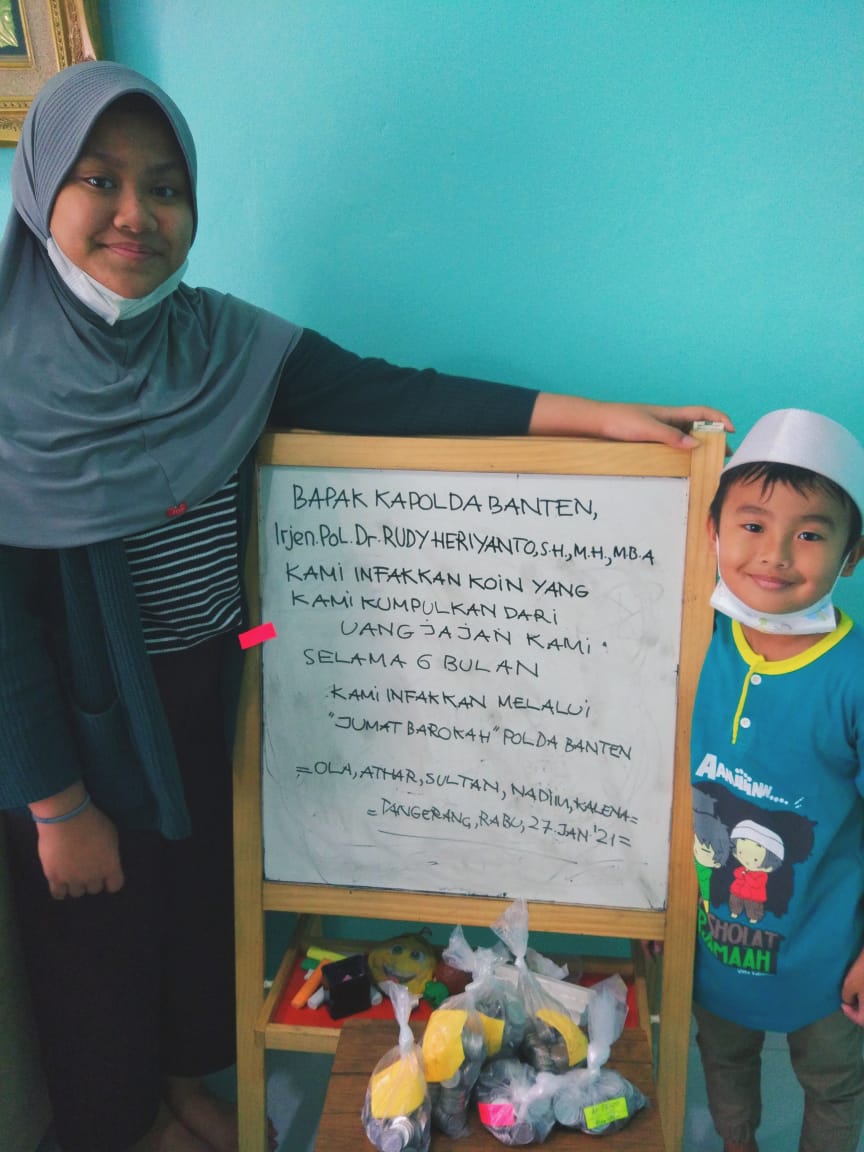 BAPAK KAPOLDA BANTEN,
Irjen.Pol.Dr.RUDY HERIYANTO,S.H.,M.H.,M.B.A
KAMI INFAKKAN KOIN YANG
KAMI KUMPULKAN DARI
UANG JAJAN KAMI
SELAMA 6 BULAN
KAMI INFAKKAN MELALUI
"JUMAT BAROKAH" POLDA BANTEN
=OLA, ATHAR, SULTAN, NADIM, KALENA=
=TANGERANG, RABU, 27 JAN '21=
AAMIIINN.....
SHOLAT